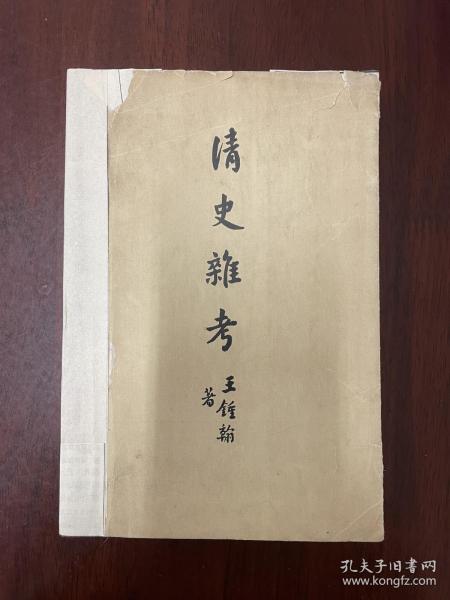 清史雜考
王鍾翰
著
孔夫子旧书网
www.kongfz.com